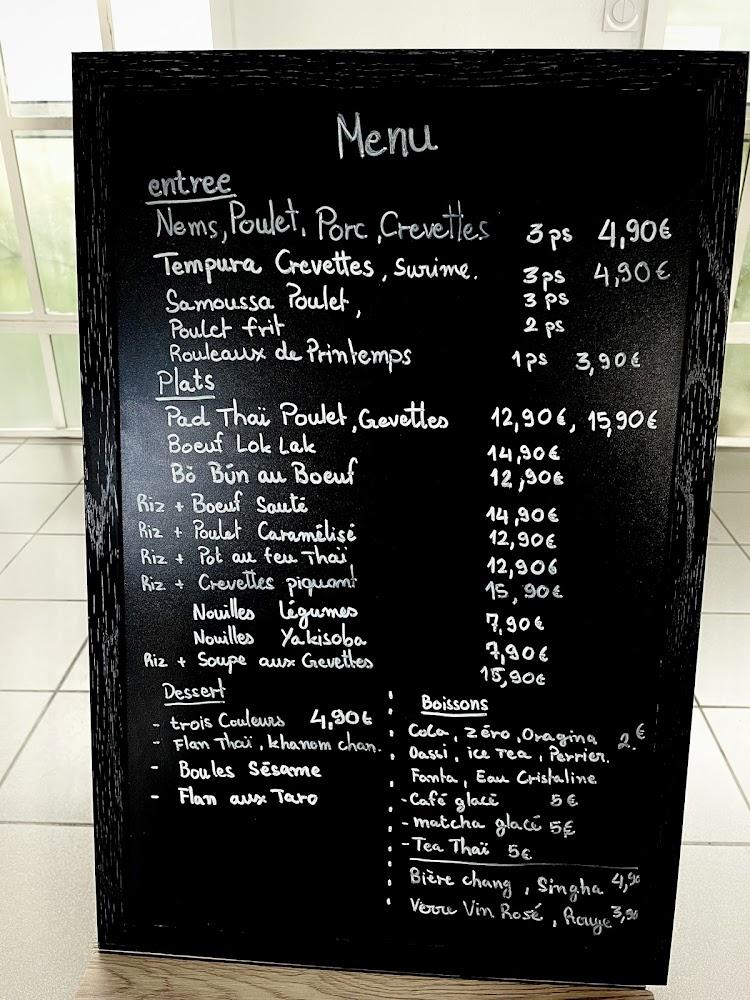 Menu
entree
Nems, Poulet, Porc, Crevettes 3 ps 4,90€
Tempura Crevettes, Surime. 3 ps 4,90€
Samoussa Poulet, 3 ps
Poulet frit 2 ps
Rouleaux de Printemps 1 ps 3,90€
Plats
Pad Thaï Poulet, Crevettes 12,90€, 15,90€
Boeuf Lok Lak 14,90€
Bò Bún au Boeuf 12,90€
Riz + Boeuf Sauté 14,90€
Riz + Poulet Caramélisé 12,90€
Riz + Pot au feu Thaï 12,90€
Riz + Crevettes piquant 15,90€
Nouilles légumes 7,90€
Nouilles Yakisoba 7,90€
Riz + Soupe aux Crevettes 15,90€
Dessert
- trois Couleurs 4,90€
- Flan Thaï, khanom chan.
- Boules Sésame
- Flan aux Taro
Boissons
CoCa, zéro, Oragina 2.€
Oassi, ice Tea, Perrier.
Fanta, Eau Cristaline
- Café glacé 5€
- matcha glacé 5€
- Tea Thaï 5€
Bière chang, Singha 4,90
Verre Vin Rosé, Rouge 3,90